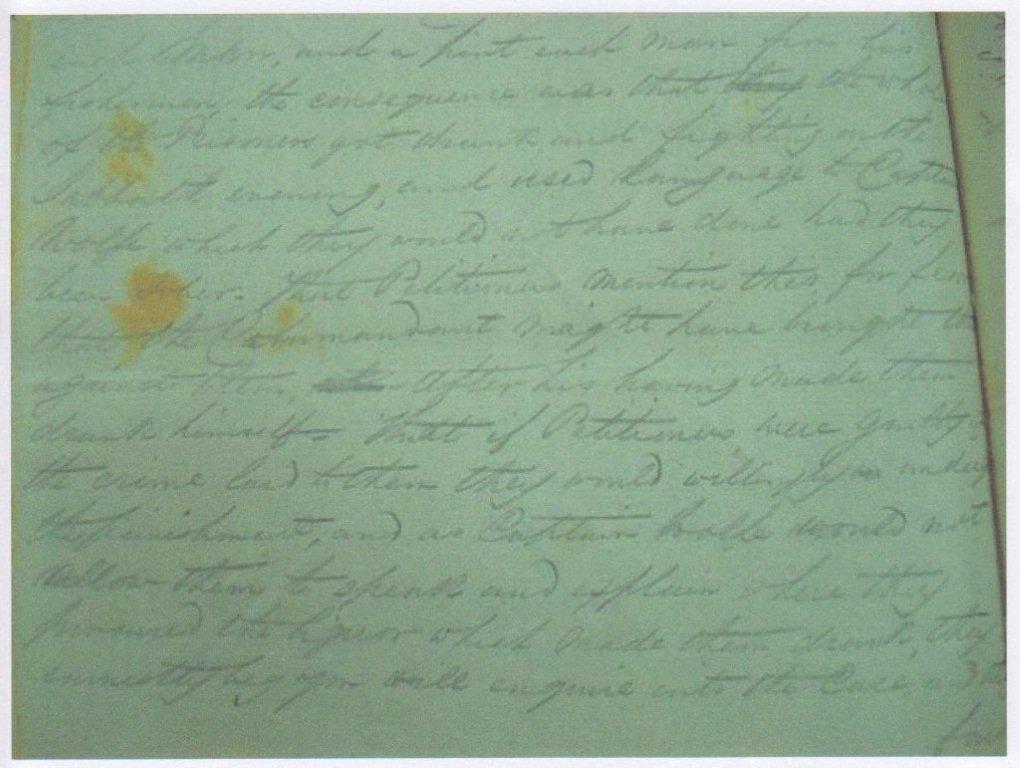 and a pint each man from his
fishermen, the consequence was that they the whole
of the Prisoners got drunk and fighting on the
Sabbath evening, and used language to Captain
Rolfe which they would not have done had they
been sober. That Petitioners mention this, for fear
that the Commandant might have brought this
against them, after his having made them
drunk himself. That if Petitioners were guilty of
the crime laid to them they would willingly undergo
the punishment, and as Captain Rolfe would not
allow them to speak and explain where they
procured the liquor which made them drunk, they
earnestly beg you will enquire into the Case and